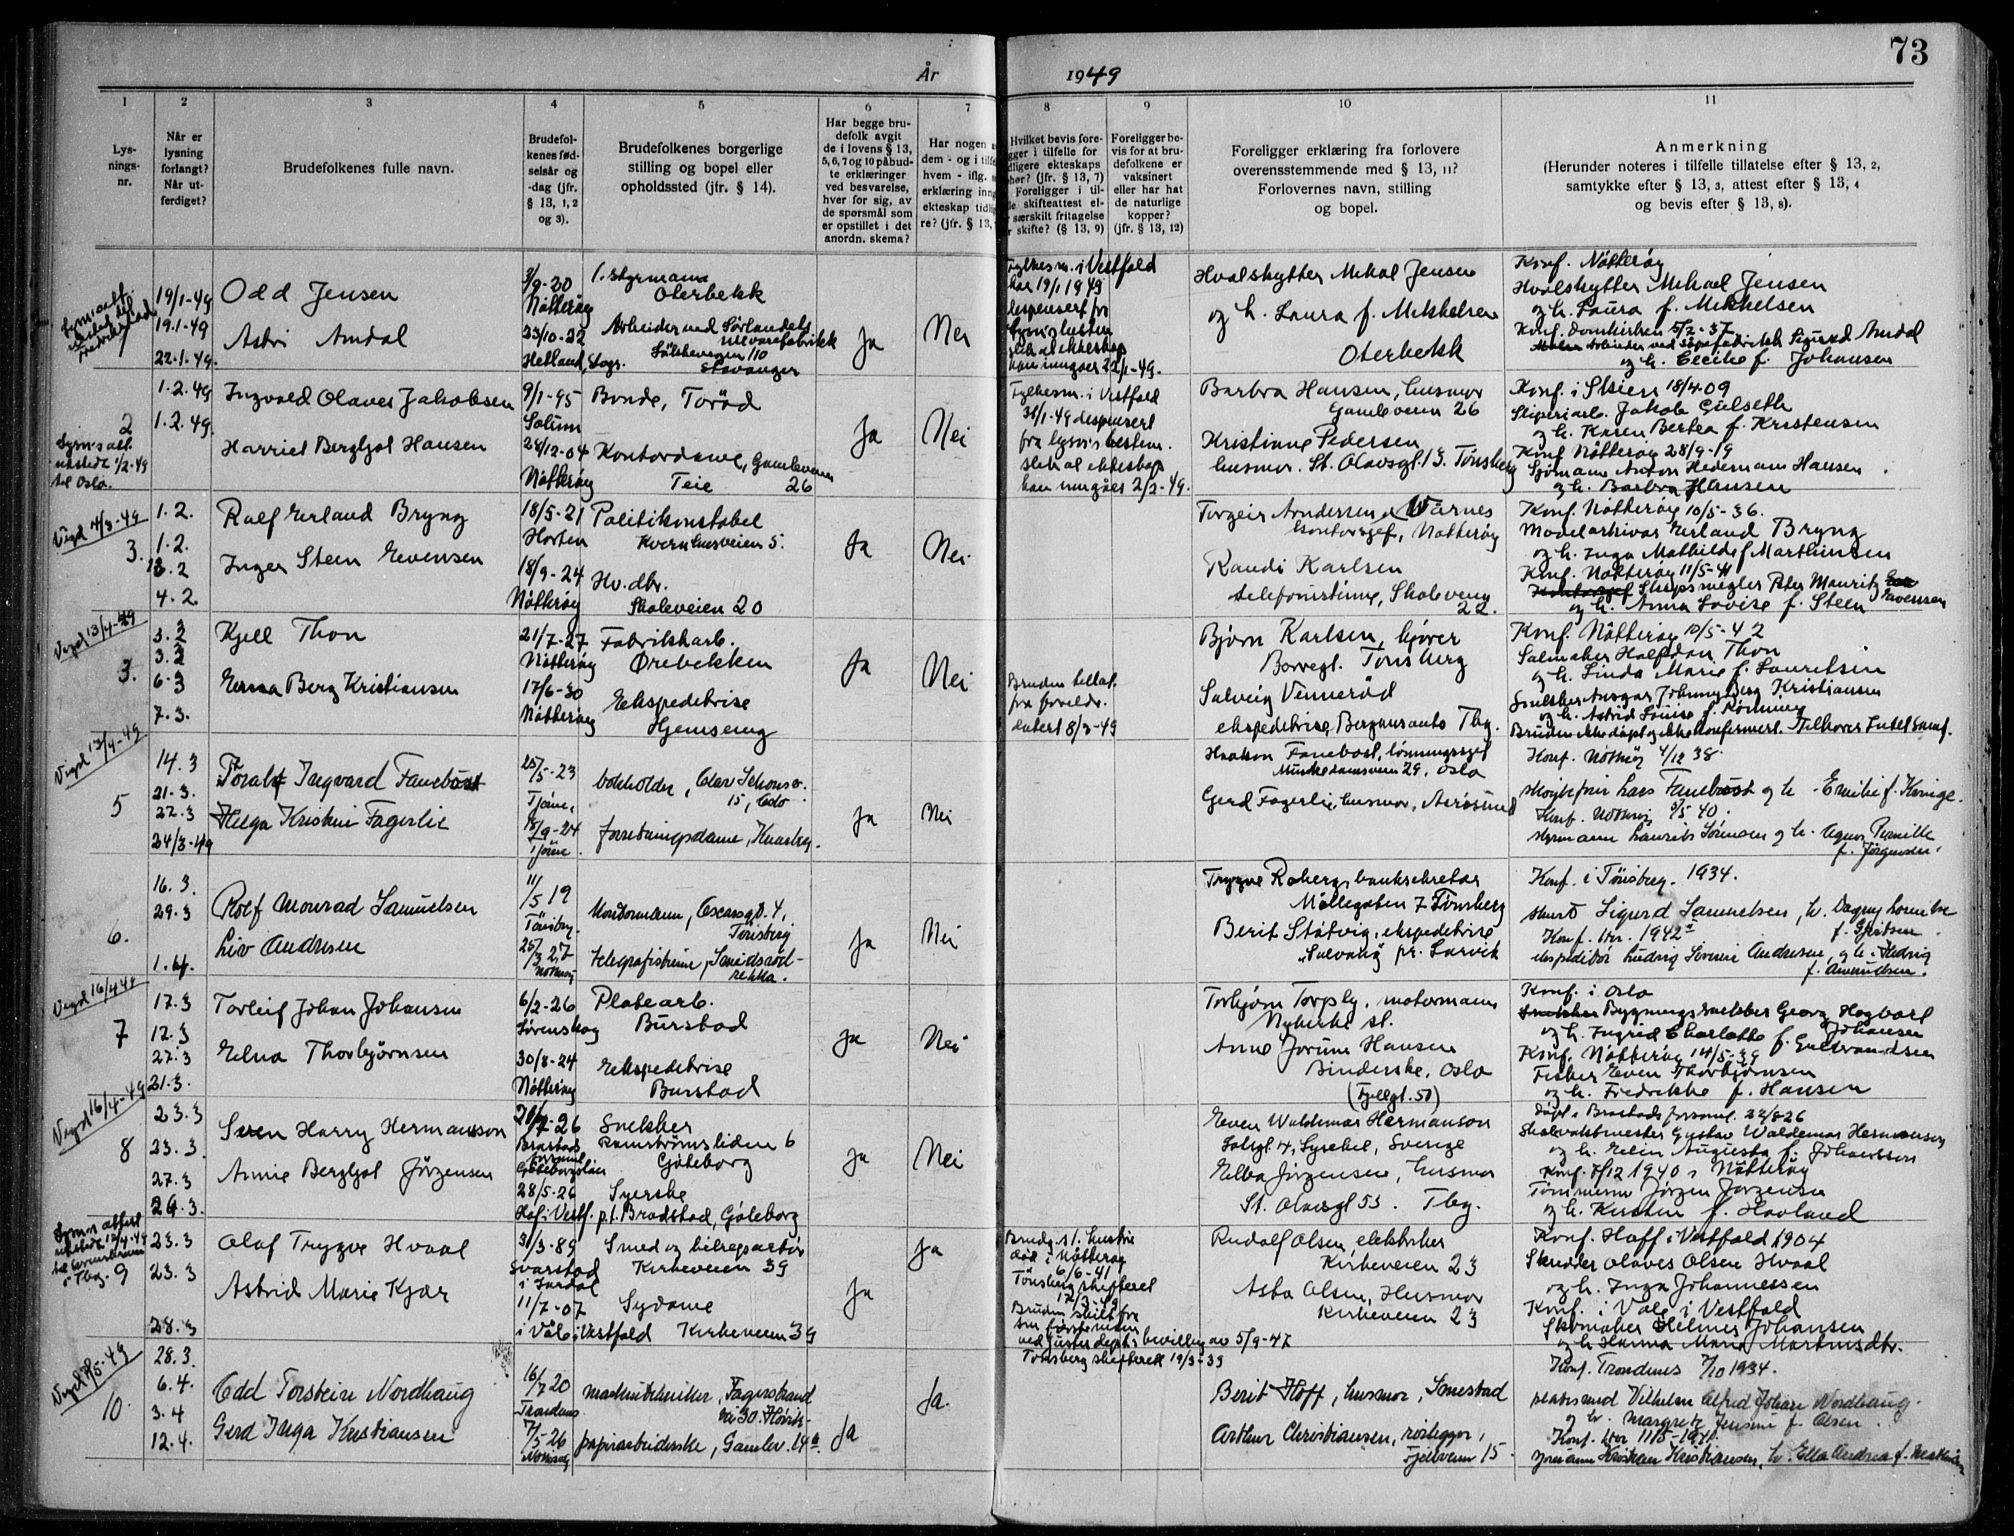 73
År 1949
1 2 3 4 5 6 7 8 9 10 11
Lysningsnr.
Når er lysning forlangt? Når utferdiget?
Brudefolkenes fulle navn.
Brudefolkenes fødselsår og -dag (jfr. § 13, 1, 2 og 3).
Brudefolkenes borgerlige stilling og bopel eller opholdssted (jfr. § 14).
Har begge brudefolk avgit de i lovens § 13, 5, 6, 7 og 10 påbudte erklæringer ved besvarelse, hver for sig, av de spørsmål som er opstillet i det anordn. skema?
Har nogen
dem - og i tilf
hvem - iflg.
erklæring inng
ekteskap tidl
re? (jfr. § 13,
Hvilket bevis fore-
gger i tilfelle for
dligere ekteskaps
hør? (jfr. § 13, 7)
Foreligger i til-
le skifteattest el-
særskilt fritagelse
r skifte? (§ 13, 9)
Foreligger bevis for at brudefolkene er vaksinert eller har hat de naturlige kopper? (jfr. § 13, 12)
Foreligger erklæring fra forlovere overensstemmende med § 13, 11? Forlovernes navn, stilling og bopel.
Anmerkning (Herunder noteres i tilfelle tillatelse efter § 13, 2, samtykke efter § 13, 3, attest efter § 13, 4 og bevis efter § 13, 8).
1
19/1-49
19.1-49
22-1-49.
Odd Jensen
Astri Amdal
Nøtterøy
23/10-22
Hetland, Rogr.
1. styrmann
Oterbekk
Arbeider ved Sørlandets
Stavanger
Ja
Nei
Fylkesm. i Vestfold
har 19/1 1949
dispensert fra
kan inngåes 22/1-49.
Hvalskytter Mikal Jensen
og h. Laura f. Mikkelsen
Oterbekk
Konf. Nøtterøy
Hvalskytter Mikael Jensen
og h. Laura f. Mikkelsen
Konf. Domkirken 5/2-37
Sigurd Amdal
og h. Cecilie f. Johansen
2
til Oslo.
1.2.49
1.2.49.
Ingvald Olaves Jakobsen
Harriet Bergljot Hansen
9/1-95
Solum
24/12-04
Nøtterøy
Bonde, Torød
Kontordame, Gamleveien
Teie 26
Ja
Nei
Fylkesm. i Vestfold
31/1-49 dispensert
fra lysn.s bestem.
slik at ekteskap
kan inngåes 2/2-49.
Barbra Hansen, husmor
Gamleveien 26
Kristiane Pedersen
husmor. St. Olavsgt. 13. Tønsberg
Konf. i Skien 18/4 09
Jakob Gulseth
og h. Karen Bertea f. Kristensen
Konf. Nøtterøy 28/9-19
Sjømann Anton Hedemann Hansen
og h. Barbra Hansen
Vigd 4/3-49
3.
1.2.
1.2.
4.2.
Ralf Erland Bryng
Inger Steen Evensen
18/5-21
Horten
18/9-24
Nøtterøy
Politikonstabel
Kvernhusveien 5.
Hv. dtr.
Skoleveien 20
Ja
Nei
Torgeir Arndersen Warnes
kontorsjef, Nøtterøy
Randi Karlsen
telefonistinne, Skoleveien
22.
Konf. Nøtterøy 10/5-36.
Modellarkivar Erland Bryng
og h. Inga Mathilde f. Marthinsen
Konf. Nøtterøy 11/5-41
Skipsmegler Peter Mauritz Evensen
og h. Anna Lovise f. Steen
Vigd 13/4-49
3.
3.2
3.2
6.3
7.3.
Kjell Thon
Erna Berg Kristiansen
21/7-27
Nøtterøy
17/6-30
Nøtterøy
Fabrikkarb.
Ørebekken
Ekspeditrise
Hjemseng
Ja
Nei
Bruden tillat.
fra foreldr.
datert 8/3-49
Bjørn Karlsen, kjører
Borregt. Tønsberg
Solveig Vennerød
ekspeditrise, Bergmannts Tbg.
Konf. Nøtterøy 10/5-42
Salmaker Halfdan Thon
og h. Linda Marie f. Lauritsen
Snekker Ansgar Johnny Berg Kristiansen
og h. Astrid Louise f. Rønning
Bruden ikke døpt og ikke konfirmert.
Vigd 13/4-49
5
14.3
21-3.
22.3
24/3-49
Toralf Ingvard Fanebust
Helga Kristine Fagerlie
25/5-23
Tjøme,
18/9-24
Tjøme.
bokholder, Olav Schousv.
15, Oslo
forretningsdame, Knarberg.
Ja
Nei
Haakon Fanebust, lønningssjef
Munkedamsveien 29, Oslo
Gerd Fagerlie, husmor, Årøsund
Konf. Nøtterøy 4/12 38.
Lars Fanebust og h. Emilie f. Konige.
Konf. Nøtterøy 5/5 40.
styrmann Laurits Sørensen og h. Agnes Pernille
f. Jørgensen.
6.
16. 3.
29.3
1.4.
Rolf Monrad Samuelsen
Liv Andresen
11/5 19
Tønsberg.
25/3 27
Nøtterøy
Kontormann, Oscarsgt. 4,
Tønsberg
telegrafistinne, Smidsrød-
rekka.
Ja
Nei
Trygve Roberg, banksekretær
Møllegaten 7 Tønsberg
Berit Støtvig, ekspeditrise
"Solvang" pr. Larvik
Konf. i Tønsberg. 1934.
Sigurd Samuelsen, h. Dagny Lorentse
f. Gjertsen.
Konf. her. 1942
ekspeditør Ludvig Severin Andresen, og h. Hedvig
f. Amundsen.
Vigd 16/4 49
7
17.3
12.3
27.3
21.3.
Torleif Johan Johansen
Elna Thorbjørnsen
6/2-26
Sørenskog
30/8-24
Nøtterøy
Platearb.
Burstad
Ekspeditrise
Burstad
Ja
Nei
Torbjørn Torpsly, motormann
Nykirke st.
Anne Jorunn Hansen
Binderske, Oslo
(Fjellgt. 50)
Konf. i Oslo
Bygningssnekker Georg Hagbart
Johansen
og h. Ingrid Charlotte f. Gulbrandsen
Konf. Nøtterøy 14/5-39
Fisker Even Thorbjørnsen
og h. Fredrikke f. Hansen
Vigd 16/4-49
8
23.3
23.3.
27.3
24.3.
Søren Harry Hermansson
Annie Bergljot Jørgensen
Brastads
Göteborgslän
28/5-26
Hof i Vestf.
Snekker
Ramströmsliden 6
Göteborg
Syerske
p.t. Bradstad, Göteborg
Ja
Nei
Even Waldemar Hermanson
Lysekil, Sverige
Elba Jørgensen, husmor
St. Olavsgt 53. Tbg.
Døpt i Brastads forsaml. 22/8 26
Gustav Waldemar Hermanson
og h. Elin Augusta f. Johansson
Konf. 7/12 1940 i Nøtterøy
Tømmerm. Jørgen Jørgensen
og h. Kirstin f. Haoland
9
23.3
23.3
28.3
Olaf Trygve Hvaal
Astrid Marie Kjær
31/3-89
Svarstad
i Lardal
11/7-07
i Våle i Vestfold
Smed og bilreparatør
Kirkeveien 39
Sydame
Kirkeveien 39
Ja
Ja
Brudg.s 1. hustru
død i Nøtterøy
6/6-41
Tønsberg skifterett
Bruden skilt fra
ved Justisdept.s bevilling av 5/9-47
Tønsberg skifterett 19/3-49
Rudolf Olsen, elektriker
Kirkeveien 23
Asta Olsen, Husmor
Kirkeveien 23
Konf. Hoff i Vestfold 1904
Skredder Olaves Olsen Hvaal
og h. Inga Johannessen
Konf. i Våle i Vestfold
Skomaker Helmer Johansen
og h. Hanna Maria Martinsdtr.
10.
28.3.
6.4.
3.4
12.4.
Odd Torstein Nordhaug
Gerd Inga Kristiansen
16/7 20
Trondenes
7/5-26
Nøtterøy
maskintekniker, Fagerstrand
papirarbeiderske, Gamlev. 14a
Ja
Ja.
Berit Hoff, husmor, Smestad
Arthur Christiansen, rørlegger,
Fjellveien 15.
Konf. Trondenes 7/10 1934.
Vilhelm Alfred Johan Nordhaug.
og h. Margrete Jensine f. Olsen.
Konf. her 11/5-1941
sjømann Kristian Kristiansen, h. Ella Andrea f. Mathisen